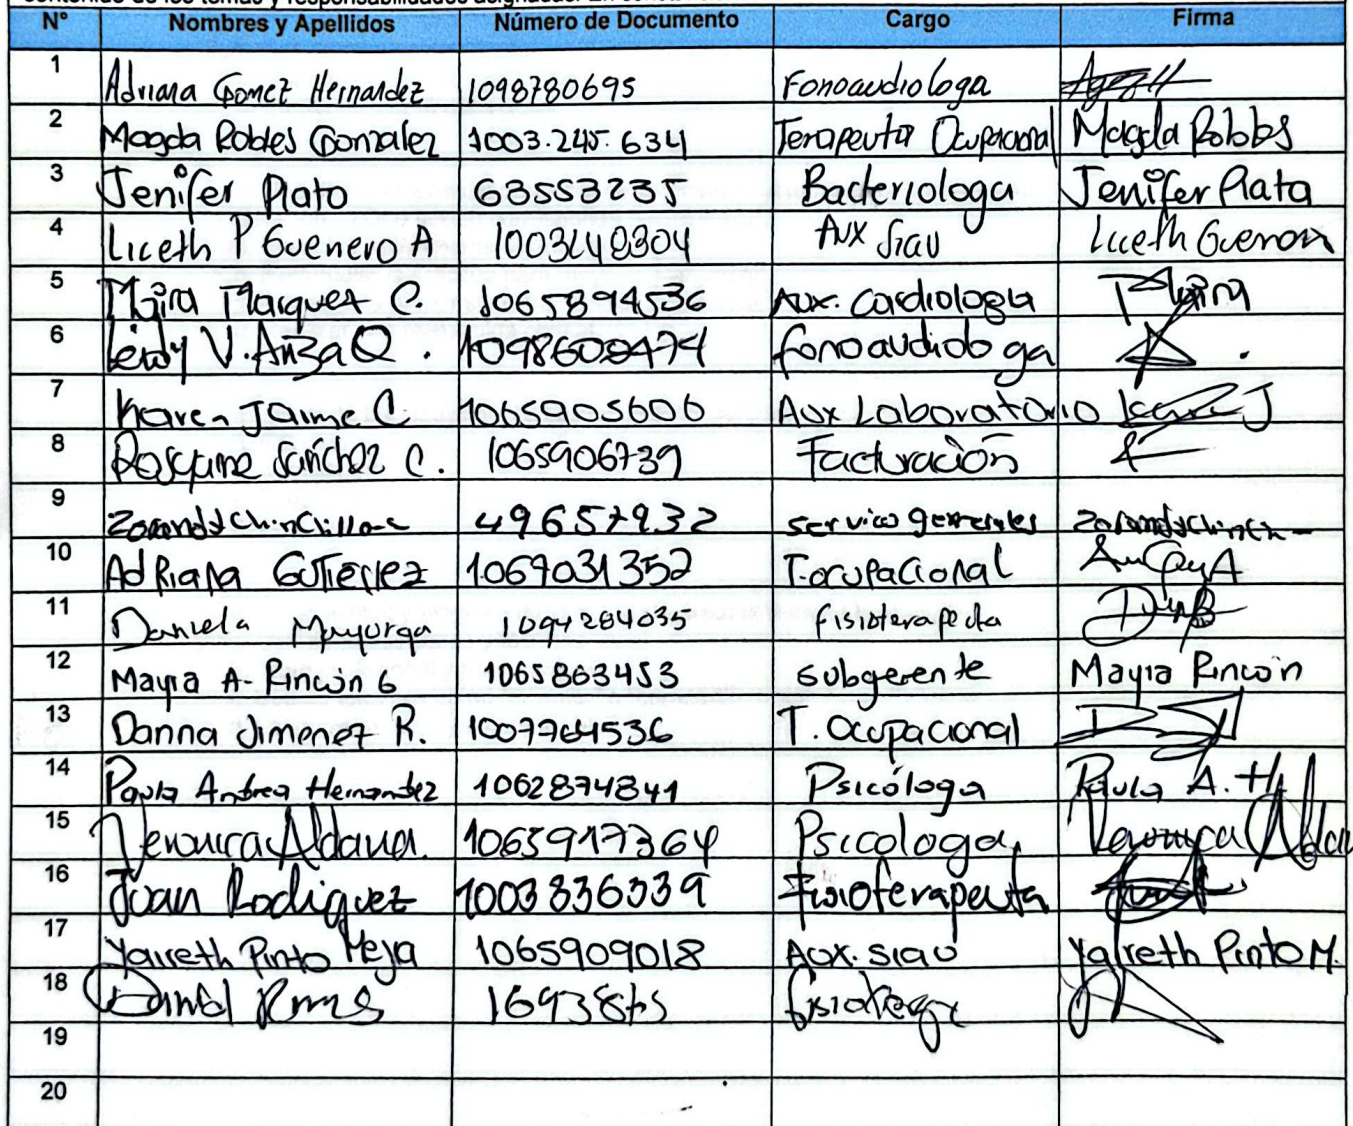 N° Nombres y Apellidos Número de Documento Cargo Firma
1 Adriana Gomez Hernandez 1098780695 Fonoaudiologa
2 Magda Robles Gonzalez 1003.245.634 Terapeuta Ocupacional Magda Robles
3 Jenifer Plata 63553235 Bacteriologa Jenifer Plata
4 Liceth P Guerrero A 1003248304 Aux siau Liceth Gueron
5 Maira Marquez C. 1065894536 Aux. Cardiologia Maira
6 Leidy V. Ariza Q. fonoaudiologa
7 Karen Jaime C 1065905606 Aux Laboratorio
8 Sanchez C. 1065906739 Facturación
9 servico generales
10 Adriana Gutierrez 1067031352 T.ocupacional
11 Daniela Mayorga 1094284035 fisioterapeuta
12 Mayra A- Rincón G 1065863453 subgerente Mayra Rincón
13 Danna Jimenez R. 1007764536 T. Ocupacional
14 Paula Andrea Hernandez 1062874841 Psicóloga Paula A. H
15 Veronica Aldana. 1065917364 Psicologa Veronica Aldan
16 Juan Rodriguez 1003836339 Fisioterapeuta
17 Yaireth Pinto Mejia 1065909018 Aux. siau Yaireth Pinto M.
18
19
20